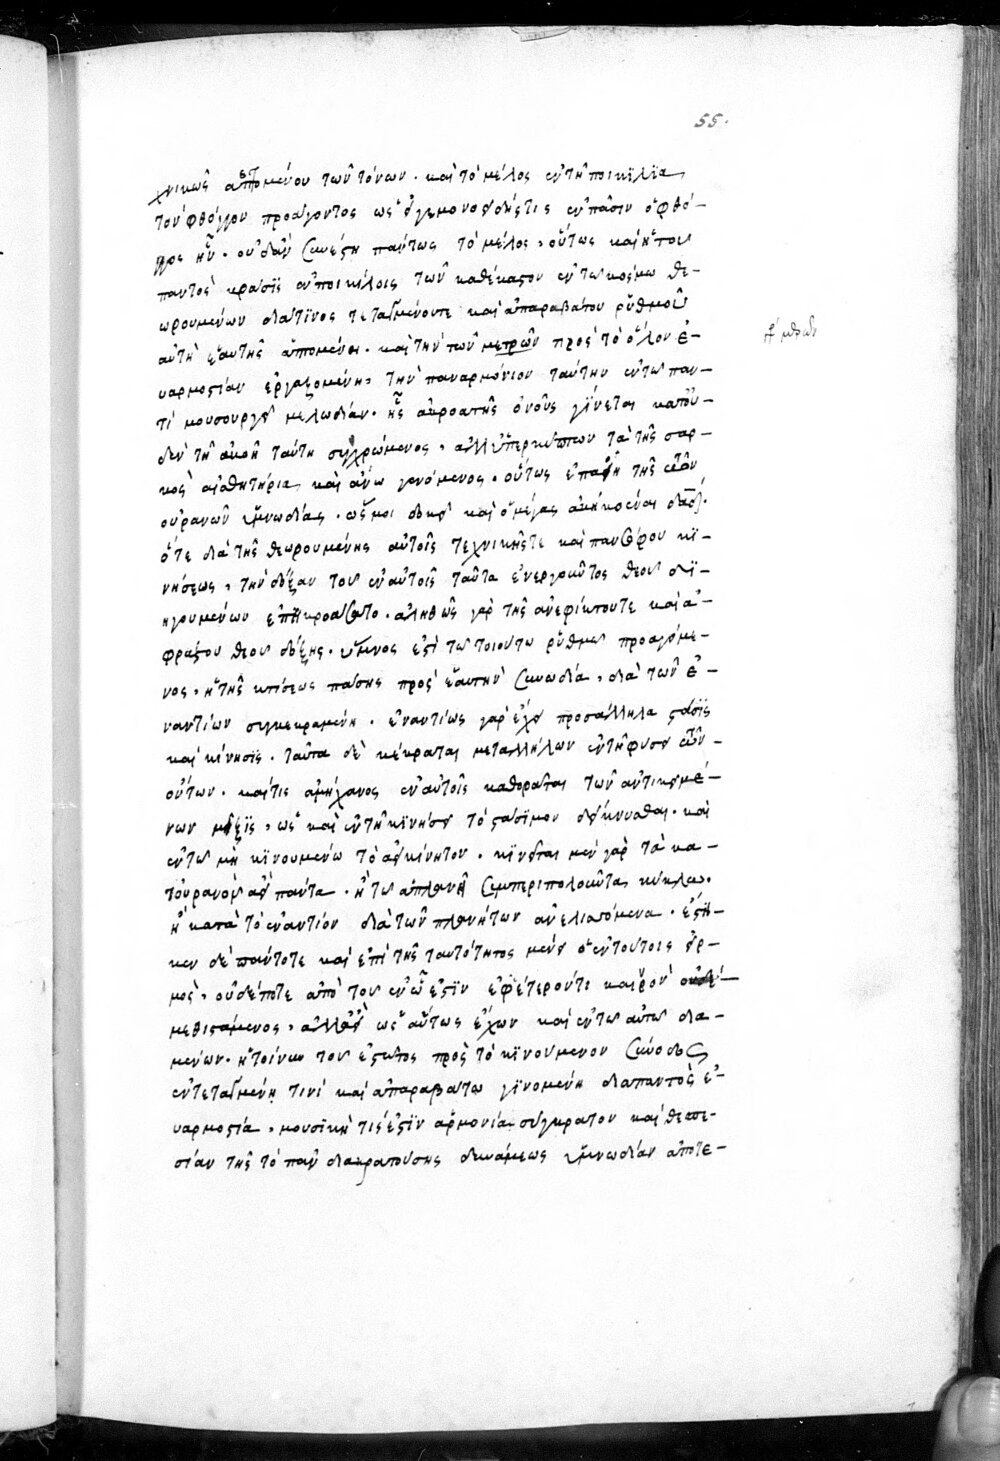 55.
χνικῶς ἁπτομένου τῶν τόνων. καὶ τὸ μέλος ἐν τῆ ποικιλία
τὸν φθόγγον προάγοντος ὡς εἴγε μονοειδής τις ἐν πᾶσιν ὁ φθό-
γγος ἦν. οὐδ' ἂν συνέστη πάντως τὸ μέλος, οὕτως καὶ ἡ τοῦ
παντὸς κρᾶσις ἐν ποικίλοις τῶν καθέκαστον ἐν τῶ κόσμω θε-
ωρουμένων διά τινος τεταγμένου τε καὶ ἀπαραβάτου ῥυθμοῦ
αὐτὴ ἑαυτῆς ἁπτομένη. καὶ τὴν τῶν μετρῶν πρὸς τὸ ὅλον ἐ-
ναρμοστίαν ἐργαζομένη, τὴν παναρμόνιον ταύτην ἐν τῶ παν-
τὶ μουσουργεῖ μελωδίαν. ἧς ἀκροατὴς ὁ νοῦς γίνεται κατ' οὐ-
δὲν τῆ ἀκοῆ ταύτη συγχρώμενος, ἀλλ' ὑπερκύπτων τὰ τῆς σαρ-
κὸς αἰσθητήρια καὶ ἄνω γενόμενος. οὕτως ἐπαΐει τῆς τῶν
οὐρανῶν ὑμνωδίας. ὥς μοι δοκεῖ καὶ ὁ μέγας ἀκηκοέναι δαδ.
ὅτε διὰ τῆς θεωρουμένης αὐτοῖς τεχνικῆς τε καὶ πανσόφου κι-
νήσεως, τὴν δόξαν τοῦ ἐν αὐτοῖς ταῦτα ἐνεργοῦντος θεοῦ δι-
ηγουμένων ἐπηκροάσατο. ἀληθῶς γὰρ τῆς ἀνεφίκτου τε καὶ ἀ-
φράστου θεοῦ δόξης. ὕμνος ἐστὶ τῶ τοιούτω ῥυθμῶ προαγόμε-
νος, ἡ τῆς κτίσεως πάσης πρὸς ἑαυτὴν συνωδία, διὰ τῶν ἐ-
ναντίων συγκεκραμένη. ἐναντίως γὰρ ἔχει προσάλληλα στάσις
καὶ κίνησις. ταῦτα δὲ κέκραται μεταλλήλων ἐν τῆ φύσει τῶν
ὄντων. καί τις ἀμήχανος ἐν αὐτοῖς καθορᾶται τῶν ἀντικειμέ-
νων μίξις, ὡς καὶ ἐν τῆ κινήσει τὸ στάσιμον δείκνυσθαι. καὶ
ἐν τῶ μὴ κινουμένω τὸ ἀεικίνητον. κινεῖται μὲν γὰρ τὰ κα-
τ' οὐρανὸν ἀεὶ πάντα. ἢ τῶ ἀπλανεῖ συμπεριπολοῦντα κύκλω.
ἢ κατὰ τὸ ἐναντίον διὰ τῶν πλανήτων ἀνελισσόμενα. ἕστη-
κεν δὲ πάντοτε καὶ ἐπὶ τῆς ταυτότητος μένει ὁ ἐν τούτοις εἱρ-
μὸς, οὐδέποτε ἀπὸ τοῦ ἐν ὧ ἐστὶν ἐφ' ἕτερόν τι καινὸν
μεθιστάμενος, ἀλλ' ἀεὶ ὡσαύτως ἔχων καὶ ἐν τῶ αὐτῶ δια-
μένων. ἡ τοίνυν τοῦ ἑστῶτος πρὸς τὸ κινούμενον σύνοδος
ἐν τεταγμένη τινὶ καὶ ἀπαραβάτω γινομένη διαπαντὸς ἐ-
ναρμοστία, μουσική τίς ἐστὶν ἁρμονία σύγκρατον καὶ θεσπε-
σίαν τῆς τὸ πᾶν διακρατούσης δυνάμεως ὑμνωδίαν ἀποτε-